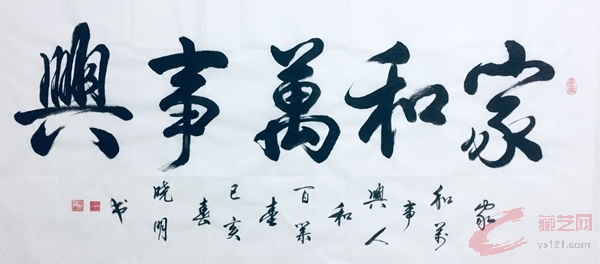 家和萬事興
家
和萬
事
興人
和
百業
己亥
春
晓明
书
藏艺网
ys121.com